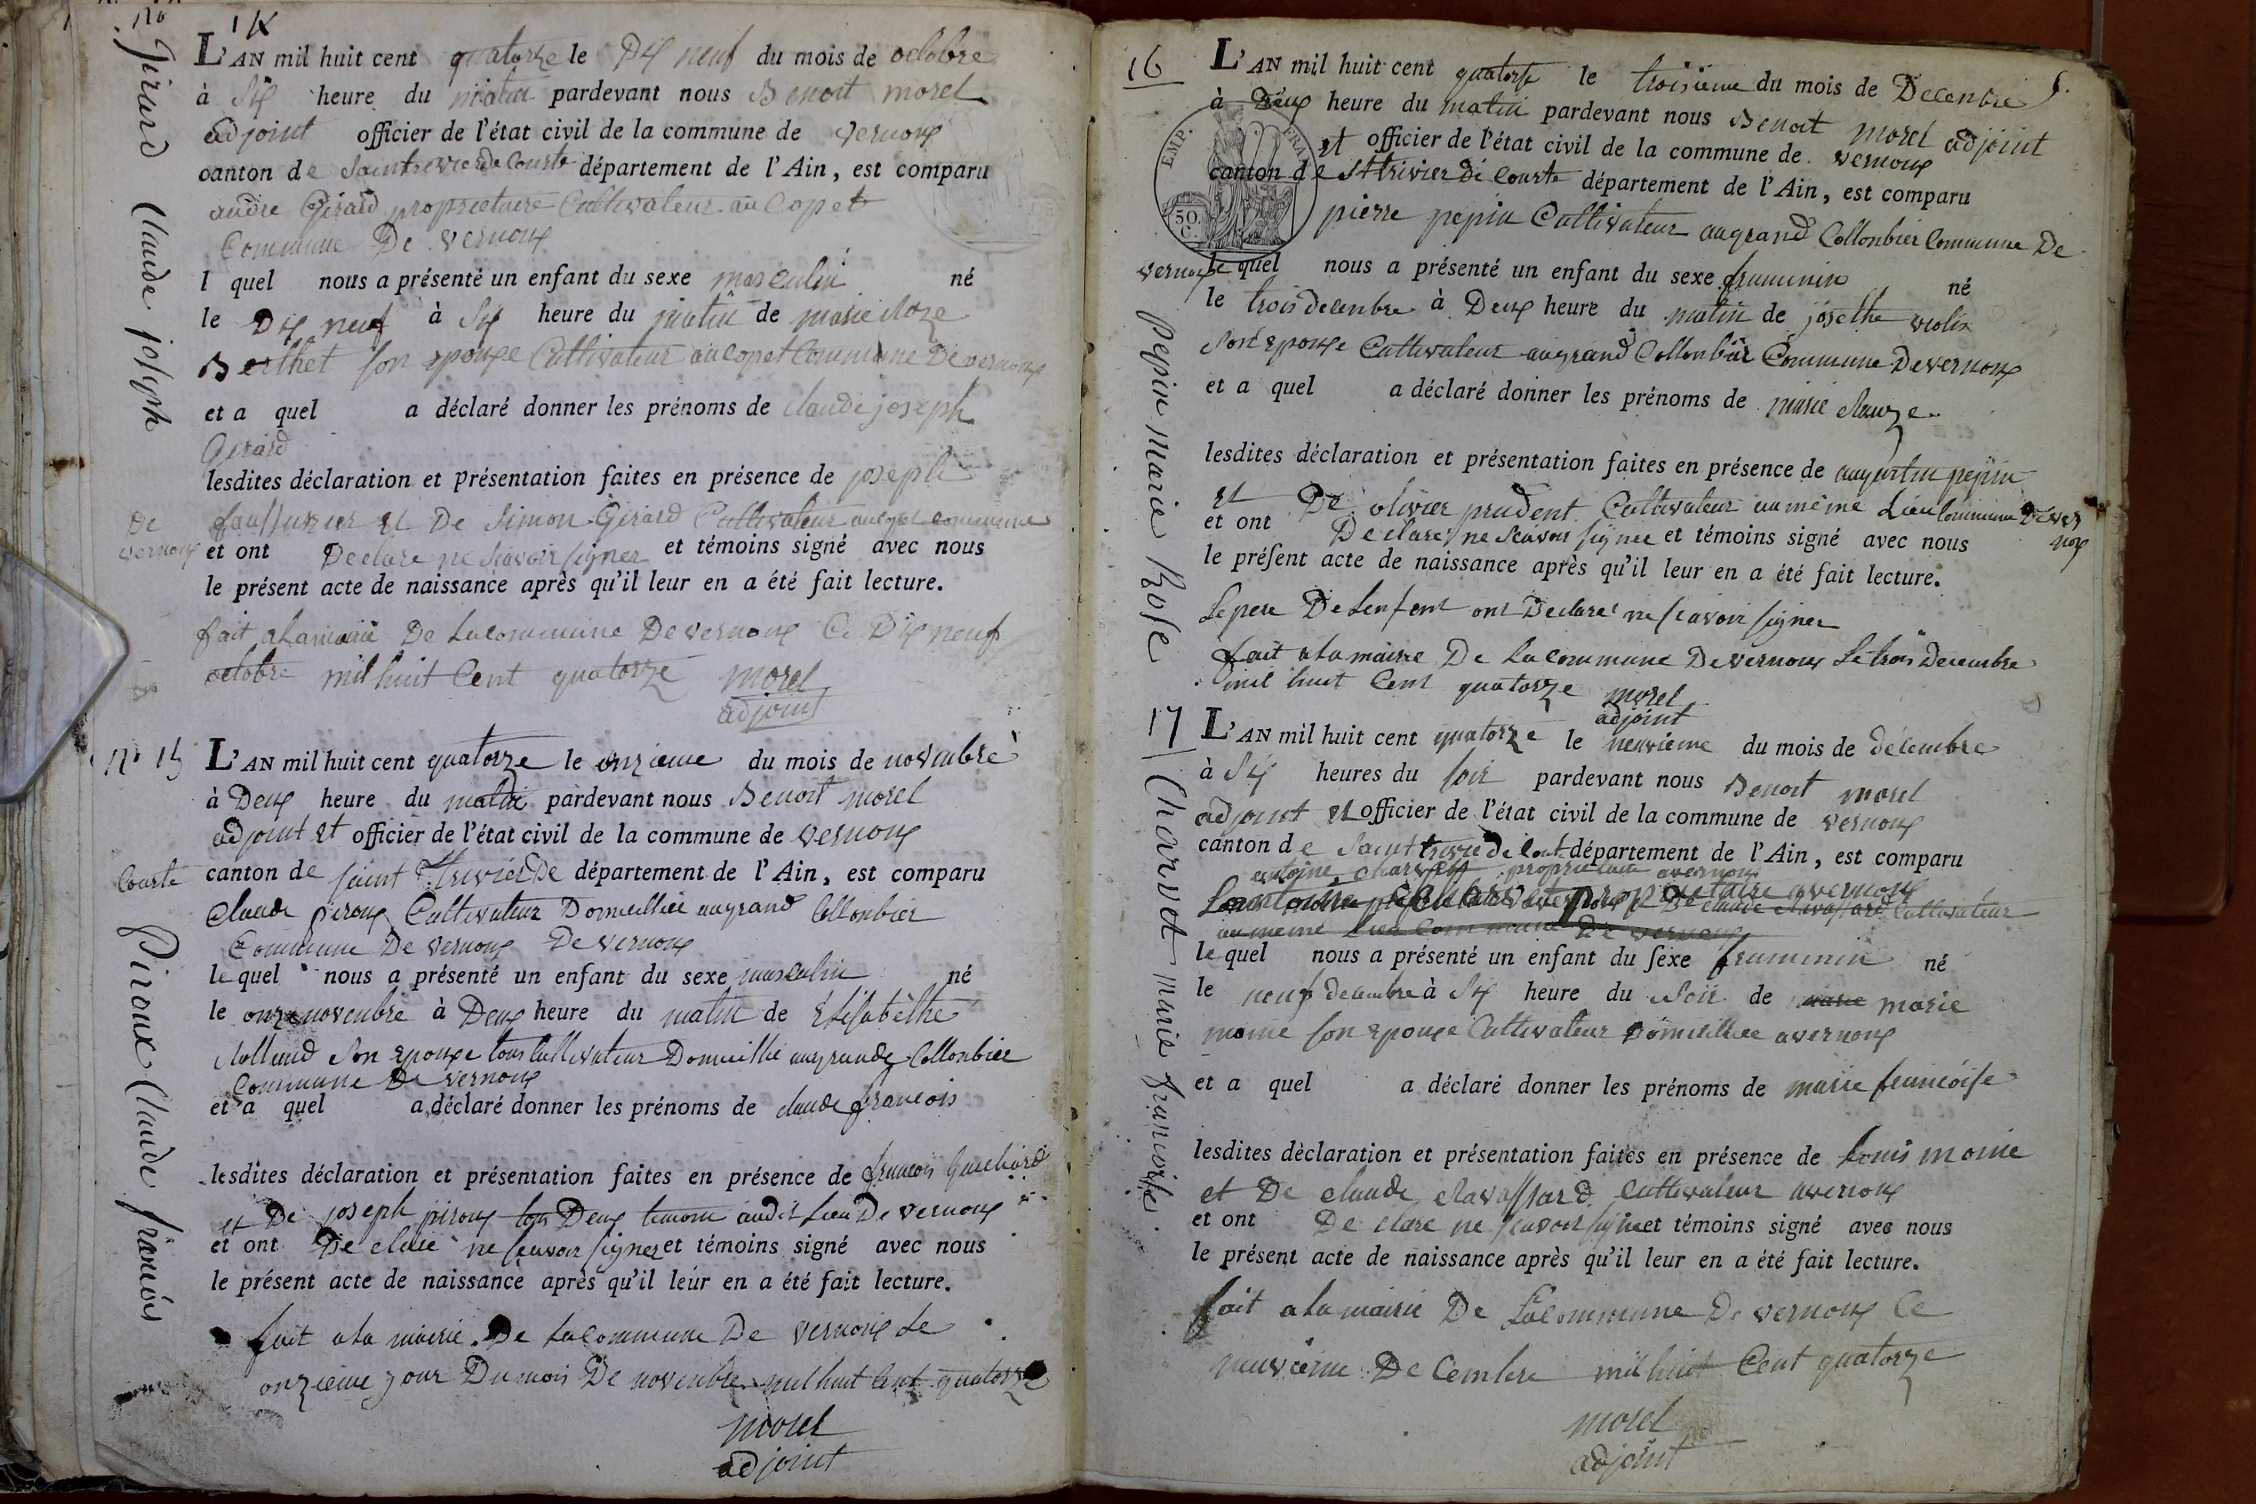 no 14
Girard Claude joseph
L'AN mil huit cent quatorze le Dix neuf du mois de octobre
à Six heure du matin pardevant nous Benoit morel
adjoint officier de l'état civil de la commune de vernoux
canton de Saintrivierde Courte département de l'Ain, est comparu
andre Girard proprietaire Cultivateur au Copet
Commune De vernoux
l quel nous a présenté un enfant du sexe masculin né
le Dix neuf à Six heure du matin de marie Roze
Berthet son epouxe Cultivateur au Copet Commune De vernoux
et a quel a déclaré donner les prénoms de claude joseph
Gerard
lesdites déclaration et présentation faites en présence de joseph
et De Simon Girard Cultivateur au Copet commune
De vernoux
et ont Declare ne Scavoir signer et témoins signé avec nous
le présent acte de naissance après qu'il leur en a été fait lecture.
fait a La mairie De La Commune De vernoux Ce Dix neuf
octobre mil huit Cent quatorze morel
adjoint
no 15
Piroux Claude francois
L'AN mil huit cent quatorze le onzieme du mois de novenbre
à Deux heure du matin pardevant nous Benoit morel
adjoint et officier de l'état civil de la commune de vernoux
canton de saint Trivier De Courte département de l'Ain, est comparu
Claude piroux Cultivateur Domeillier au grand Collonbier
Commune De vernoux De vernoux
le quel nous a présenté un enfant du sexe masculin né
le onze novenbre à Deux heure du matin de Elisabèthe
Rolland Son epouxe tous Cultivateur Domeillie au grande Collonbier
Commune De vernoux
et a quel a déclaré donner les prénoms de claude francois
lesdites déclaration et présentation faites en présence de francois Guichard
et De joseph piroux tous Deux temoin audit Lieu De vernoux
et ont De clare ne scavoir signer et témoins signé avec nous
le présent acte de naissance après qu'il leur en a été fait lecture.
fait a la mairie De La Commune De vernoux Le
onzieme jour Du mois De novenbre mil huit Cent quatorze
morel
adjoint
5.
16
pepin marie Rose
L'AN mil huit cent quatorse le troisieme du mois de Decenbre
à Deux heure du matin pardevant nous Benoit morel adjoint
et officier de l'état civil de la commune de vernoux
canton de St trivier de Courte département de l'Ain, est comparu
EMP. FRA
50. C.
pierre pepin Cultivateur au grand Collonbier Commune De
vernoux
le quel nous a présenté un enfant du sexe feminin né
le trois decenbre à Deux heure du matin de josethe violix
Son epouxe Cultivateur au grand Collonbier Commune De vernoux
et a quel a déclaré donner les prénoms de marie Rauze
lesdites déclaration et présentation faites en présence de augustin pepin
et De olivier prudent Cultivateur au même Lieu Commune De vernoux
et ont Declare ne Scavoir signer et témoins signé avec nous
le présent acte de naissance après qu'il leur en a été fait lecture.
Le pere De Lenfent ont Declarer ne scavoir signer
fait a La mairie De La Commune De vernoux Le trois Decembre
mil huit Cent quatorze morel
adjoint
17
Charvet marie francoise
L'AN mil huit cent quatorze le neuvieme du mois de décembre
à Six heures du soir pardevant nous Benoit morel
adjoint et officier de l'état civil de la commune de vernoux
canton de Saint trivie de Courte département de l'Ain, est comparu
antoine charvet proprietaire avernoux
antoine charvet proprietaire avernoux
De claude Ravassard Cultivateur
au meme Lieu Commune De vernoux
le quel nous a présenté un enfant du sexe feminin né
le neuf decembre à Six heure du Soir de marie marie
moine son epouxe Cultivateur Domeillier avernoux
et a quel a déclaré donner les prénoms de marie francoise
lesdites déclaration et présentation faites en présence de Louis moine
et De claude Ravassard Cultivateur avernoux
et ont De clare ne scavoir signe et témoins signé avec nous
le présent acte de naissance après qu'il leur en a été fait lecture.
fait a la mairie De La Commune De vernoux Ce
neuvieme De Cembre mil huit Cent quatorze
morel
adjoint